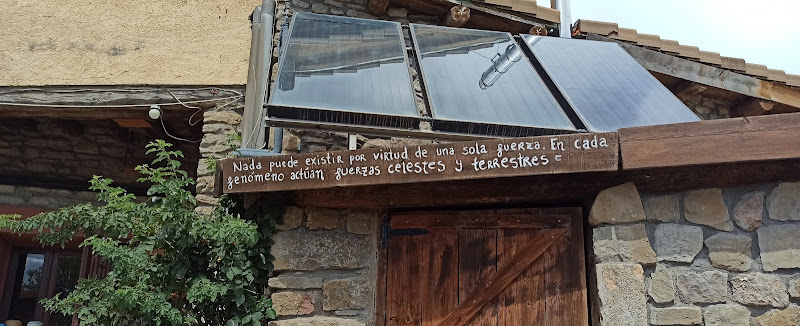 Nada puede existir por virtud de una sola fuerza. En cada
fenómeno actúan fuerzas celestes y terrestres =